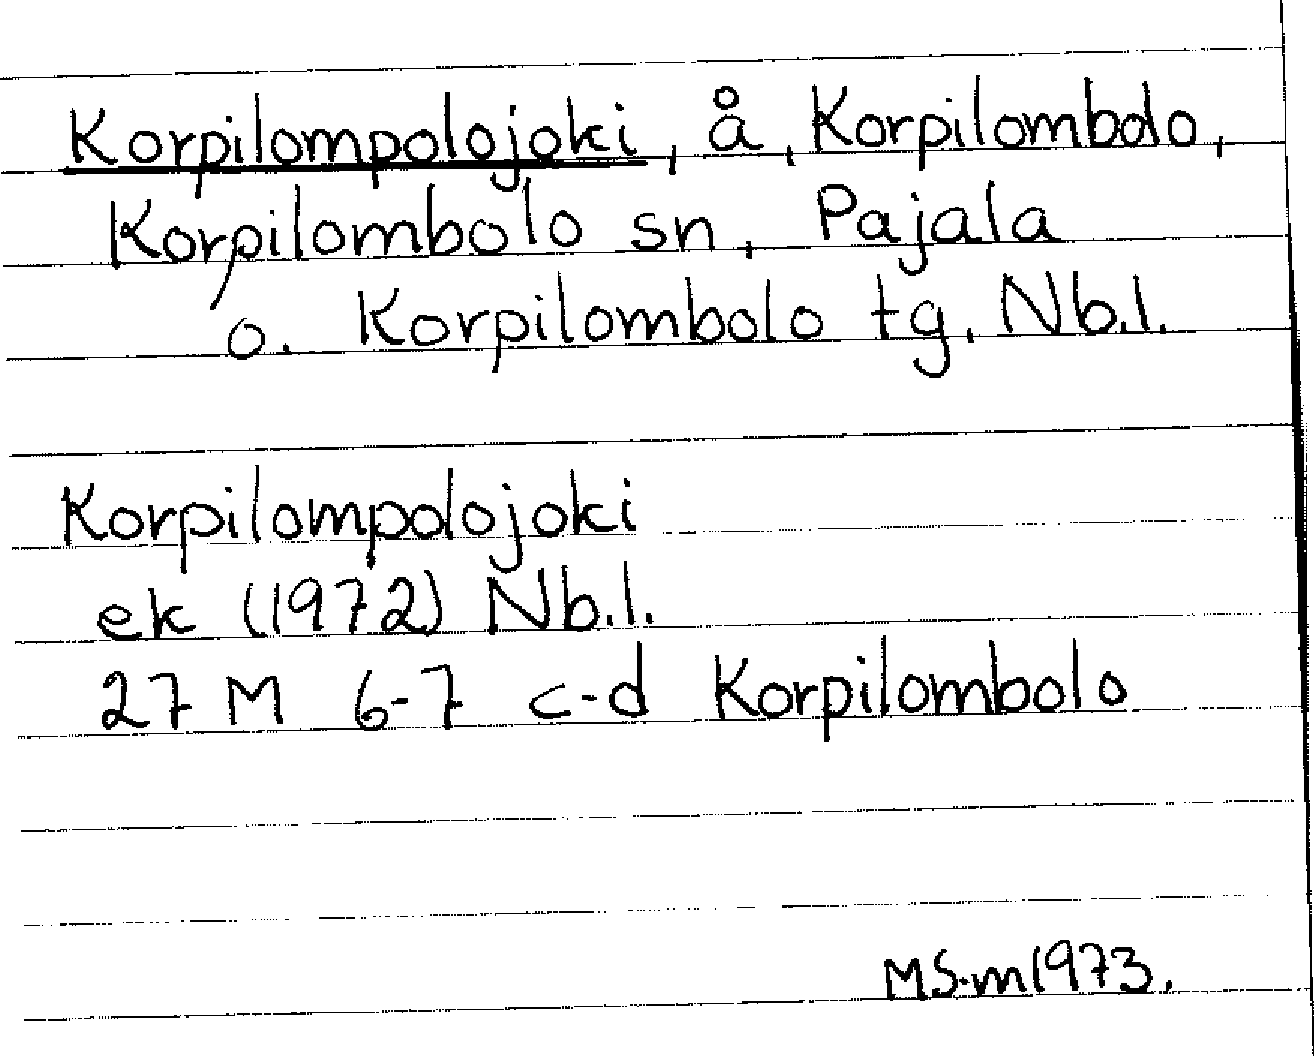 Korpilompolojoki, å, Korpilombolo,
Korpilombolo sn, Pajala
o. Korpilombolo tg, Nb.l.
Korpilompolojoki
ek (1972) Nb.l.
27 M 6-7 c-d Korpilombolo
MS.m1973.